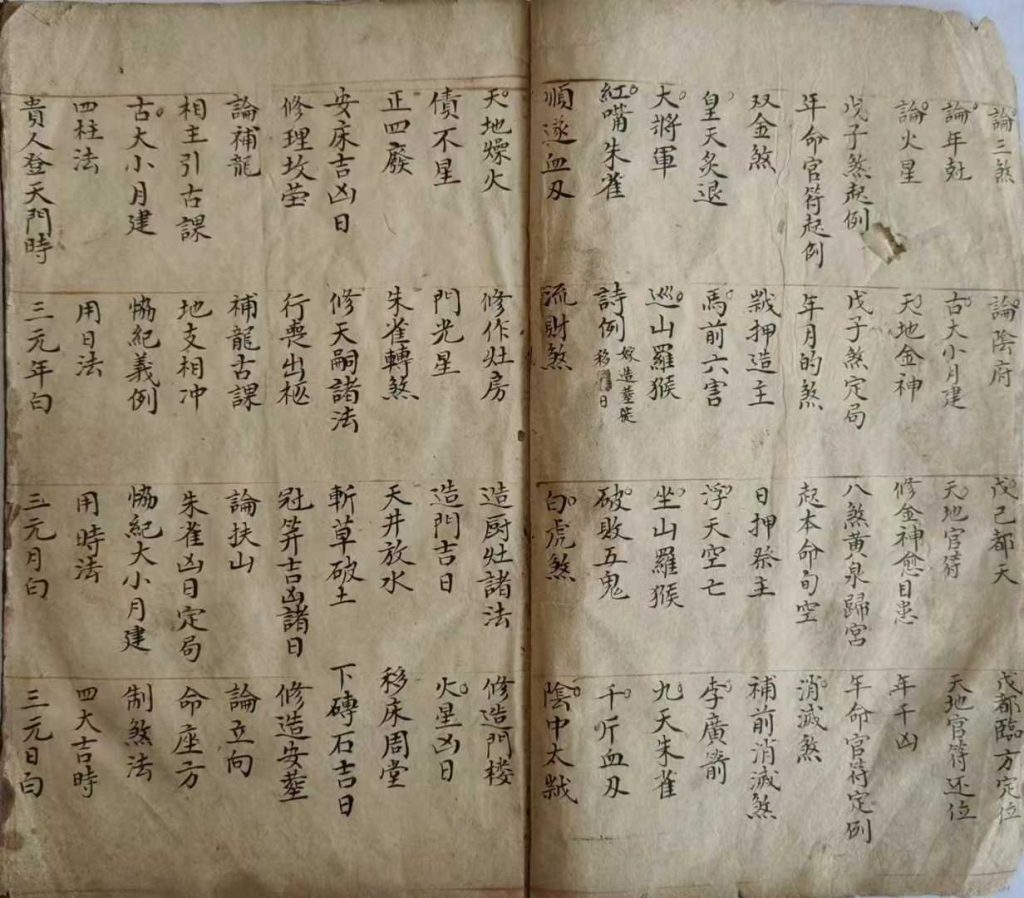 論三煞 論陰府 戊己都天 戊都臨方定位
論年尅 古大小月建 天地官符 天地官符还位
論火星 天地金神 修金神愈目患 年千凶
戊子煞起例 戊子煞定局 八煞黄泉歸宮 年命官符定例
年命官符起例 年月的煞 起本命旬空 消滅煞
双金煞 歲押造主 日押祭主 補前消滅煞
皇天炙退 馬前六害 浮天空亡 李廣箭
大將軍 巡山羅猴 坐山羅猴 九天朱雀
紅嘴朱雀 詩例 嫁造塟 移 日 破敗五鬼 千斤血刃
順逆血刃 流財煞 白虎煞 陰中太歲
天地燥火 修作灶房 造厨灶諸法 修造門楼
債不星 門光星 造門吉日 火星凶日
正四廢 朱雀轉煞 天井放水 移床周堂
安床吉凶日 修天嗣諸法 斬草破土 下磚石吉日
修理坟茔 行喪出柩 冠笄吉凶諸日 修造安塟
論補龍 補龍古課 論扶山 論立向
相主引古課 地支相冲 朱雀凶日定局 命座方
古大小月建 恊紀義例 恊紀大小月建 制煞法
四柱法 用日法 用時法 四大吉時
貴人登天門時 三元年白 三元月白 三元日白